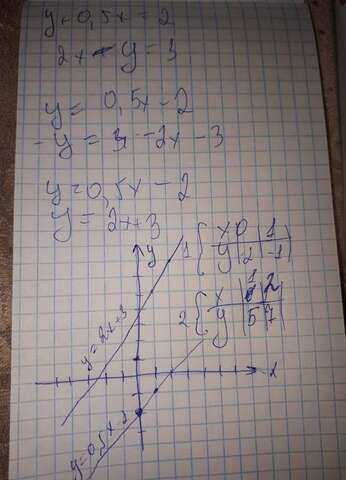 y+0,5x=2
2x-y=3
y= 0,5x-2
-y= -2x-3
y=0,5x-2
y=2x+3
y
1 { x | 0 | 1
y | 2 | -1 |
2 { x | 1 | 2 |
y | 5 | 7 |
y=2x+3
y=0,5x-2